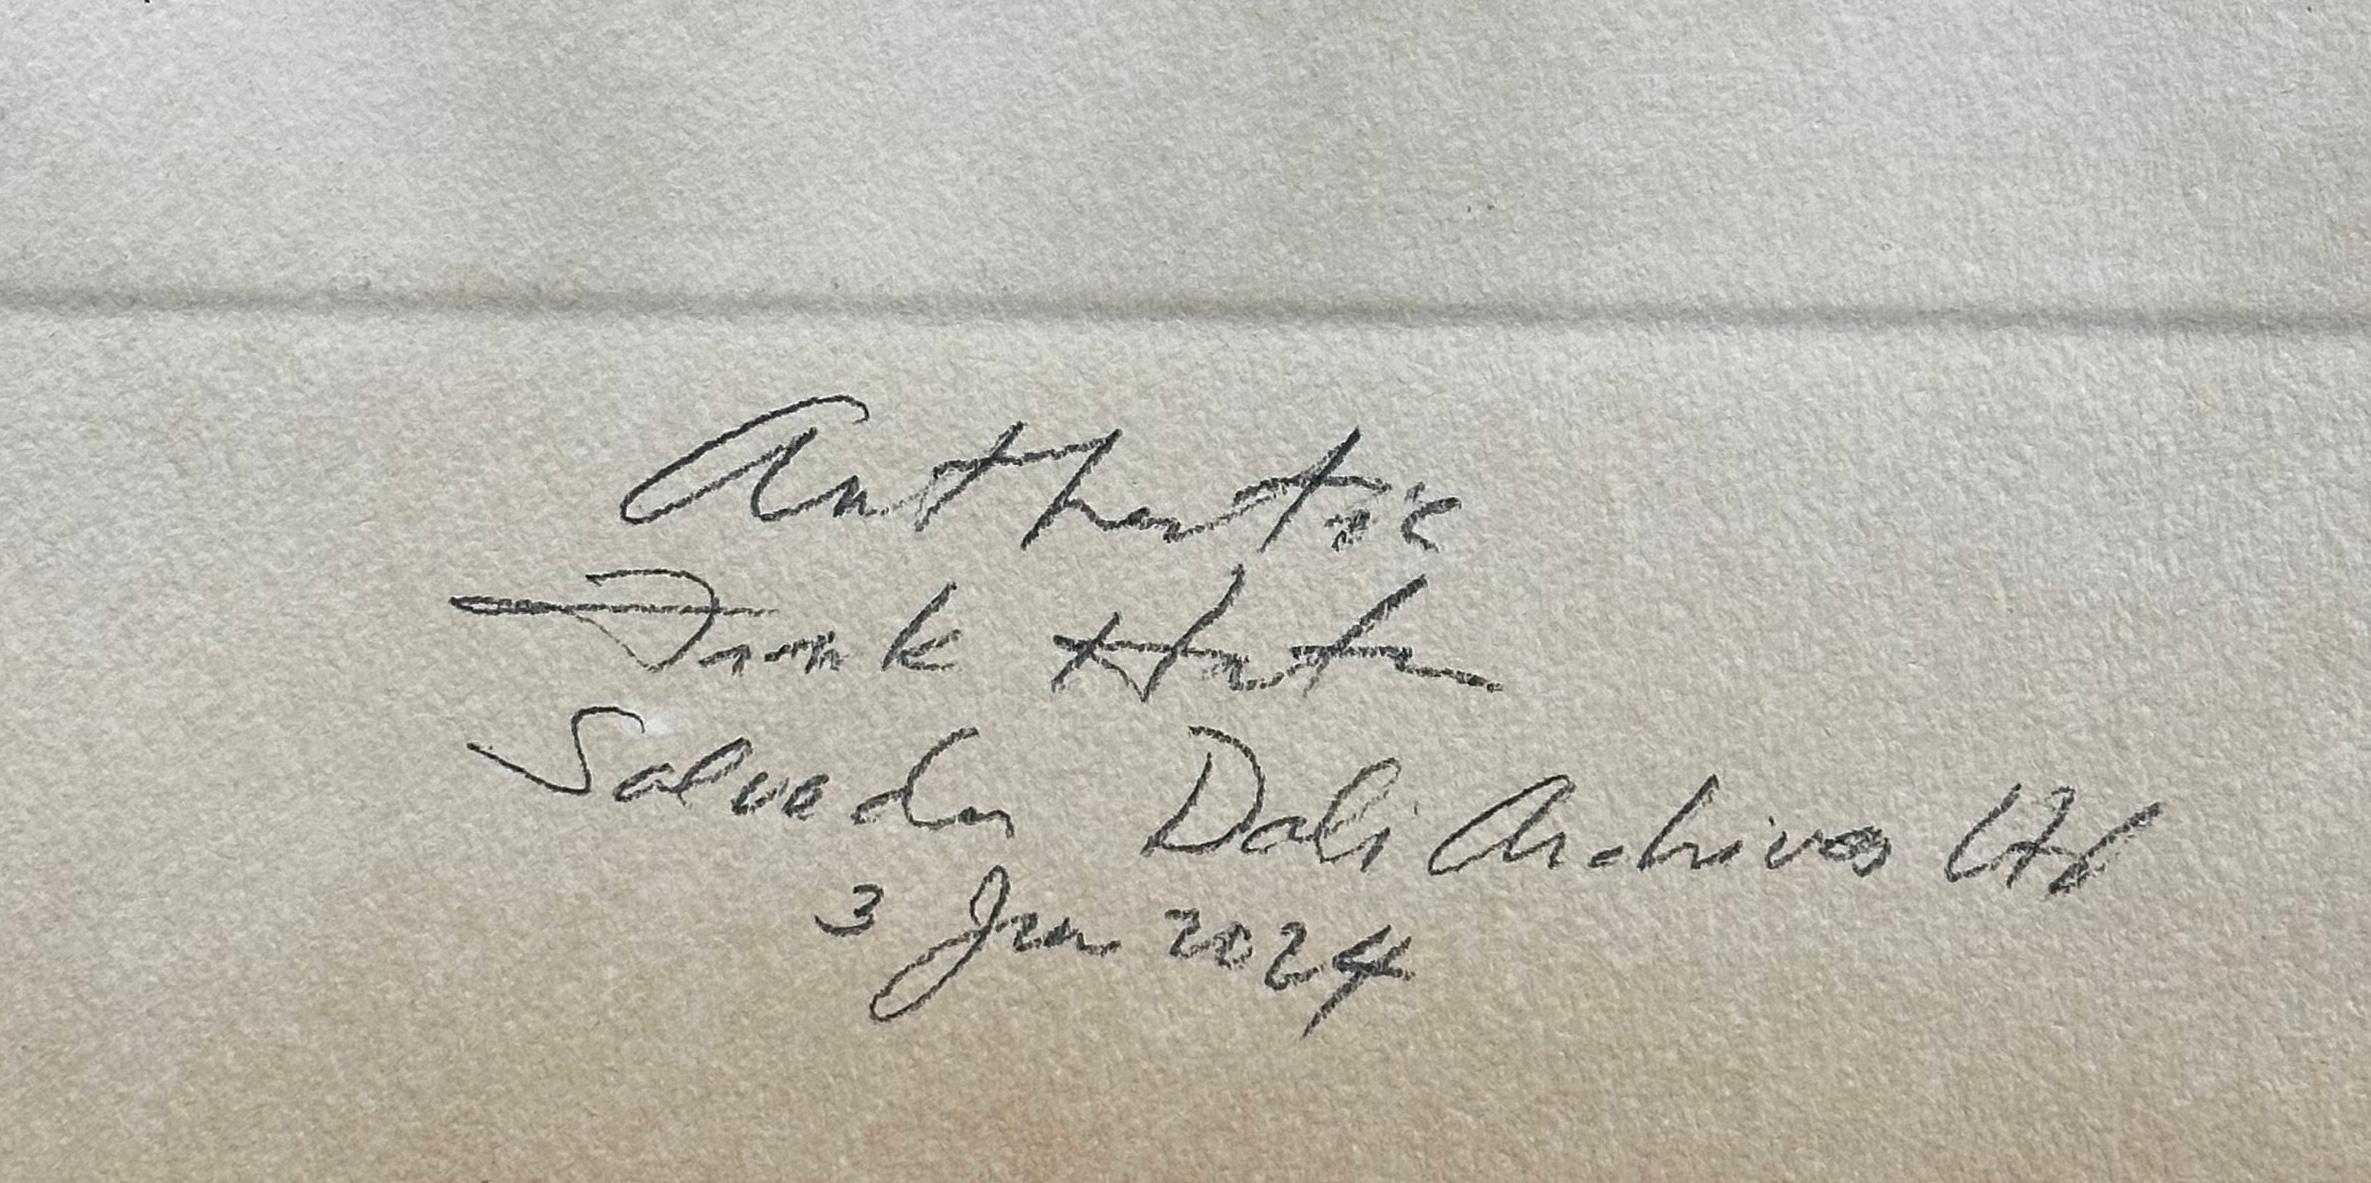 Authentic
Frank Hunter
Salvador Dali Archives Ltd
3 Jan 2024